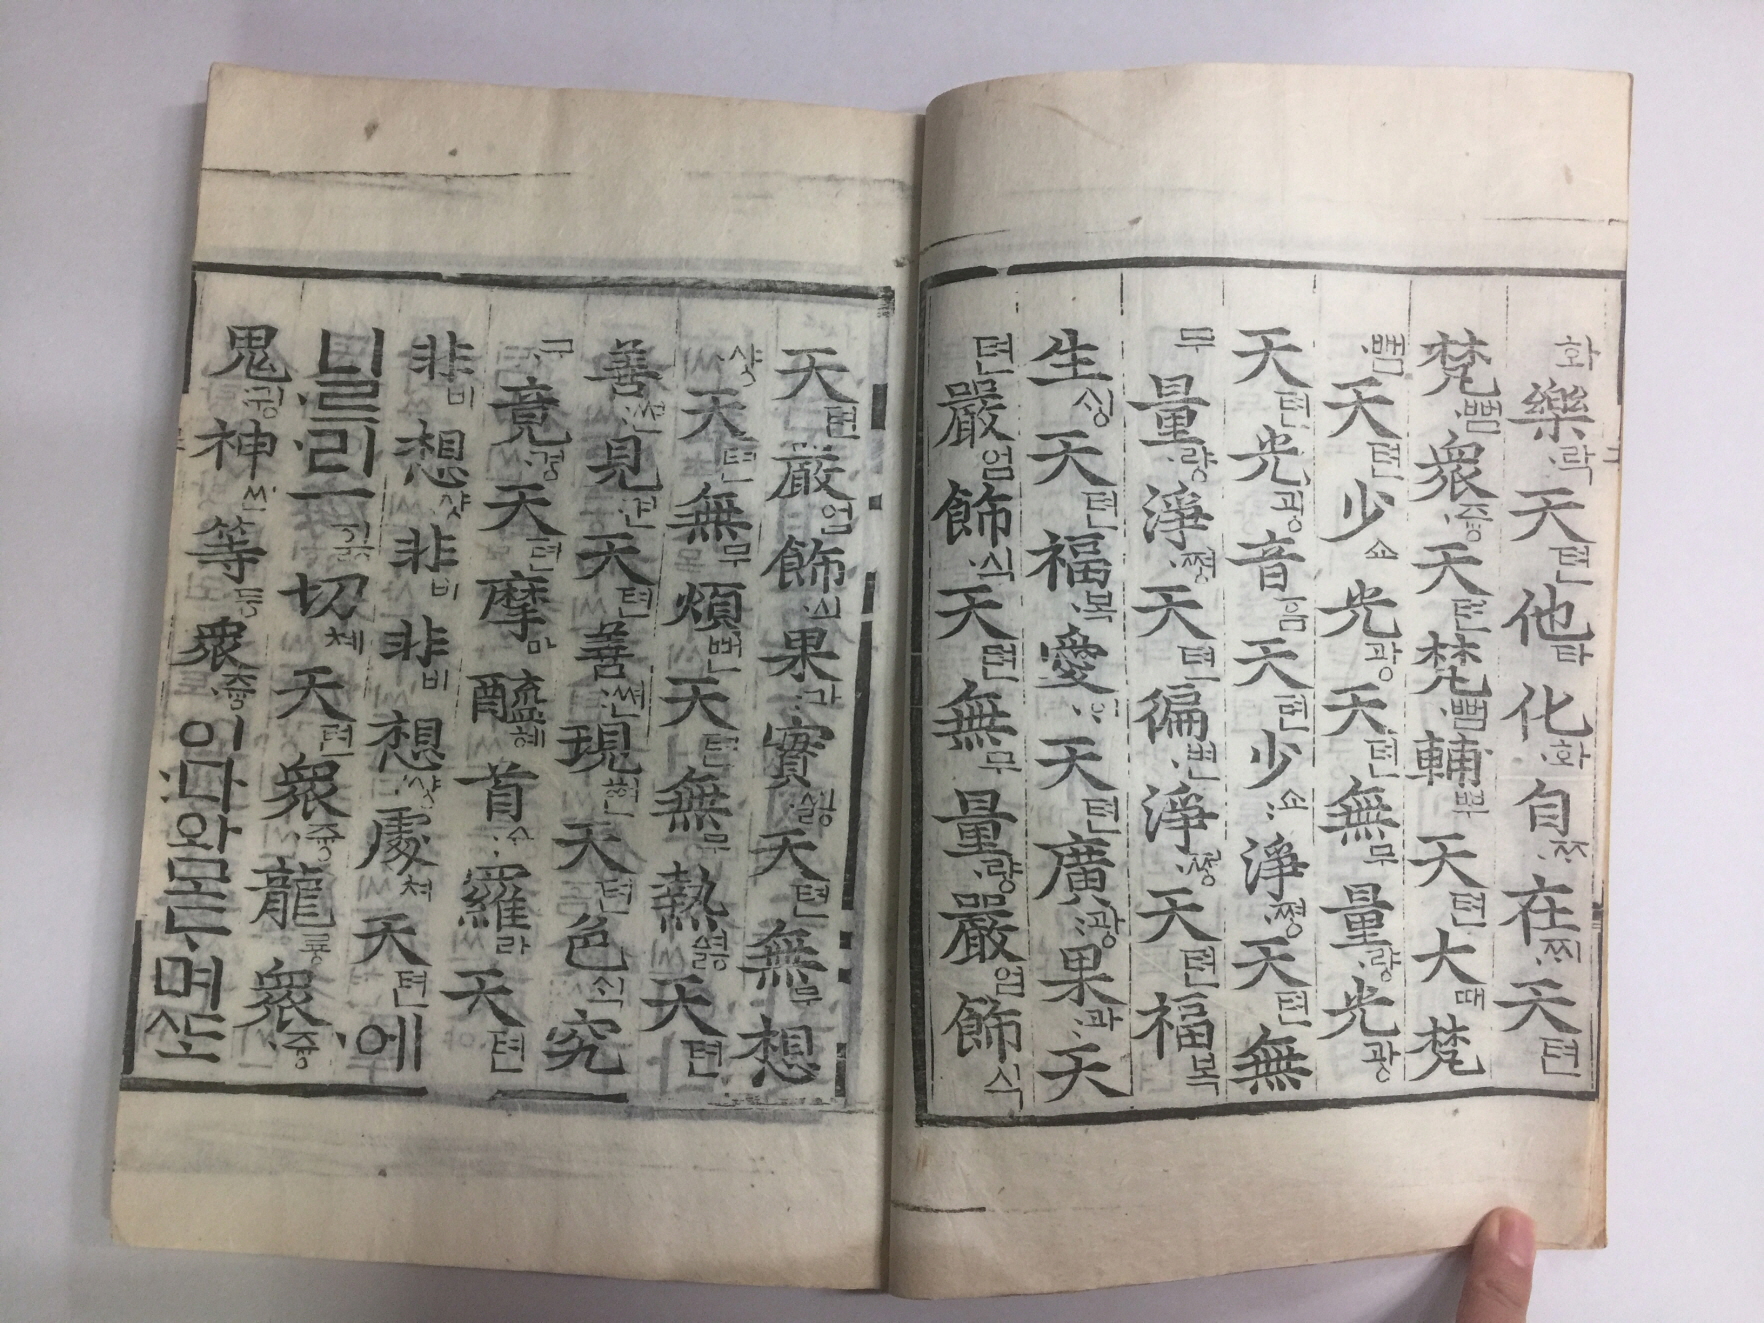 화樂락天텬他타化화自ᄍᆞ在ᄍᆡ天텬
梵뻠衆즁天텬梵뻠輔뿌天텬大때梵
뻠天텬少쇼光광天텬無무量량光광
天텬光광音ᅙᅳᆷ天텬少쇼淨쪙天텬無
무量량淨쪙天텬徧변淨쪙天텬福복
生ᄉᆡᆼ天텬福복愛ᅙᆡ天텬廣광果과天
텬嚴엄飾식天텬無무量량嚴엄飾식
天텬嚴엄飾식果과實싫天텬無무想
샹天텬無무煩뻔天텬無무熱ᅀᅧᇙ天텬
善쎤見견天텬善쎤現현天텬色ᄉᆡᆨ究
구竟경天텬摩마醯혜首슈羅라天텬
非비想샹非비非비想샹處쳐天텬에
니르리一ᅙᅵᇙ切쳬天텬衆즁龍룡衆즁
鬼귕神씬等등衆즁이다와모ᄃᆞ며ᄯᅩ